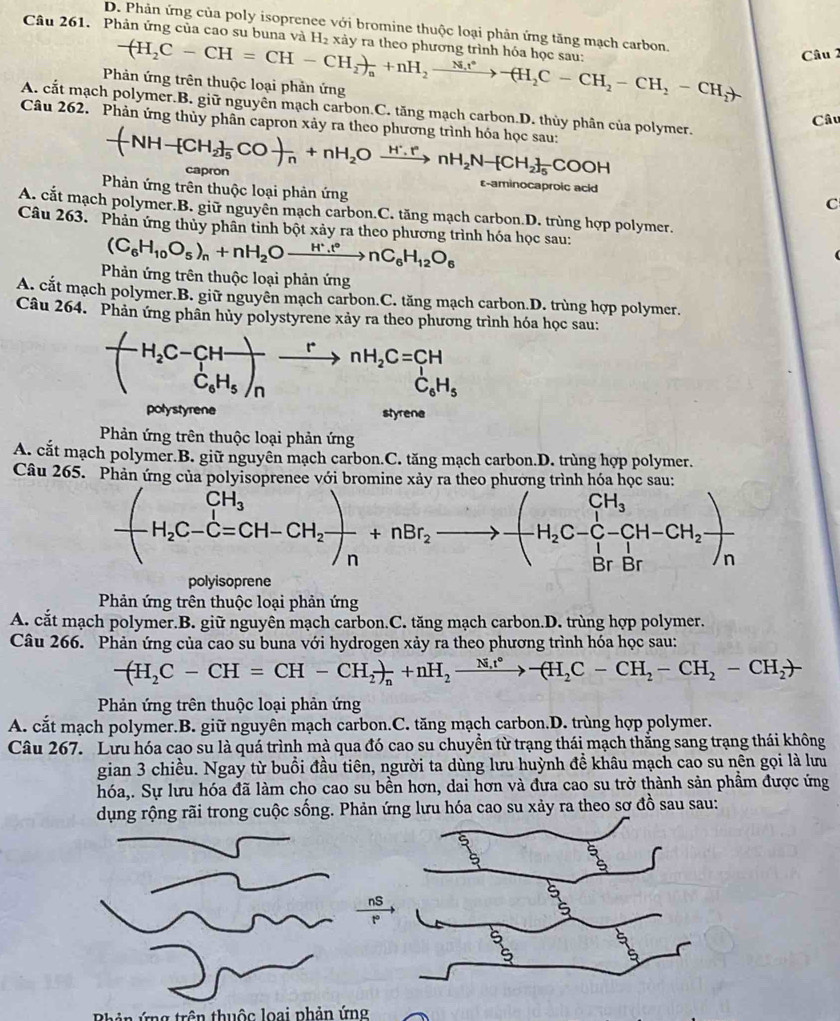 D. Phản ứng của poly isoprenee với bromine thuộc loại phản ứng tăng mạch carbon.
Câu 261. Phản ứng của cao su buna và H₂ xảy ra theo phương trình hóa học sau:
-(H₂C - CH = CH - CH₂)ₙ + nH₂ —Ni,t°→ -(H₂C - CH₂ - CH₂ - CH₂)-
Phản ứng trên thuộc loại phản ứng
A. cắt mạch polymer.B. giữ nguyên mạch carbon.C. tăng mạch carbon.D. thủy phân của polymer.
Câu 262. Phản ứng thủy phân capron xảy ra theo phương trình hóa học sau:
(NH-[CH₂]₅CO)ₙ + nH₂O —H⁺,t°→ nH₂N-[CH₂]₅COOH
capron ε-aminocaproic acid
Phản ứng trên thuộc loại phản ứng
A. cắt mạch polymer.B. giữ nguyên mạch carbon.C. tăng mạch carbon.D. trùng hợp polymer.
Câu 263. Phản ứng thủy phân tinh bột xảy ra theo phương trình hóa học sau:
(C₆H₁₀O₅)ₙ + nH₂O —H⁺,t°→ nC₆H₁₂O₆
Phản ứng trên thuộc loại phản ứng
A. cắt mạch polymer.B. giữ nguyên mạch carbon.C. tăng mạch carbon.D. trùng hợp polymer.
Câu 264. Phản ứng phân hủy polystyrene xảy ra theo phương trình hóa học sau:
(H₂C-CH)ₙ —t°→ nH₂C=CH
C₆H₅ C₆H₅
polystyrene styrene
Phản ứng trên thuộc loại phản ứng
A. cắt mạch polymer.B. giữ nguyên mạch carbon.C. tăng mạch carbon.D. trùng hợp polymer.
Câu 265. Phản ứng của polyisoprenee với bromine xảy ra theo phương trình hóa học sau:
CH₃ CH₃
(H₂C-C=CH-CH₂)ₙ + nBr₂ → (H₂C-C-CH-CH₂)ₙ
Br Br
polyisoprene
Phản ứng trên thuộc loại phản ứng
A. cắt mạch polymer.B. giữ nguyên mạch carbon.C. tăng mạch carbon.D. trùng hợp polymer.
Câu 266. Phản ứng của cao su buna với hydrogen xảy ra theo phương trình hóa học sau:
-(H₂C - CH = CH - CH₂)ₙ + nH₂ —Ni,t°→ -(H₂C - CH₂ - CH₂ - CH₂)-
Phản ứng trên thuộc loại phản ứng
A. cắt mạch polymer.B. giữ nguyên mạch carbon.C. tăng mạch carbon.D. trùng hợp polymer.
Câu 267. Lưu hóa cao su là quá trình mà qua đó cao su chuyển từ trạng thái mạch thẳng sang trạng thái không
gian 3 chiều. Ngay từ buổi đầu tiên, người ta dùng lưu huỳnh để khâu mạch cao su nên gọi là lưu
hóa,. Sự lưu hóa đã làm cho cao su bền hơn, dai hơn và đưa cao su trở thành sản phẩm được ứng
dụng rộng rãi trong cuộc sống. Phản ứng lưu hóa cao su xảy ra theo sơ đồ sau sau:
nS
t°
S S S S S S S S S S
Phản ứng trên thuộc loại phản ứng
Câu 2
Câu
C